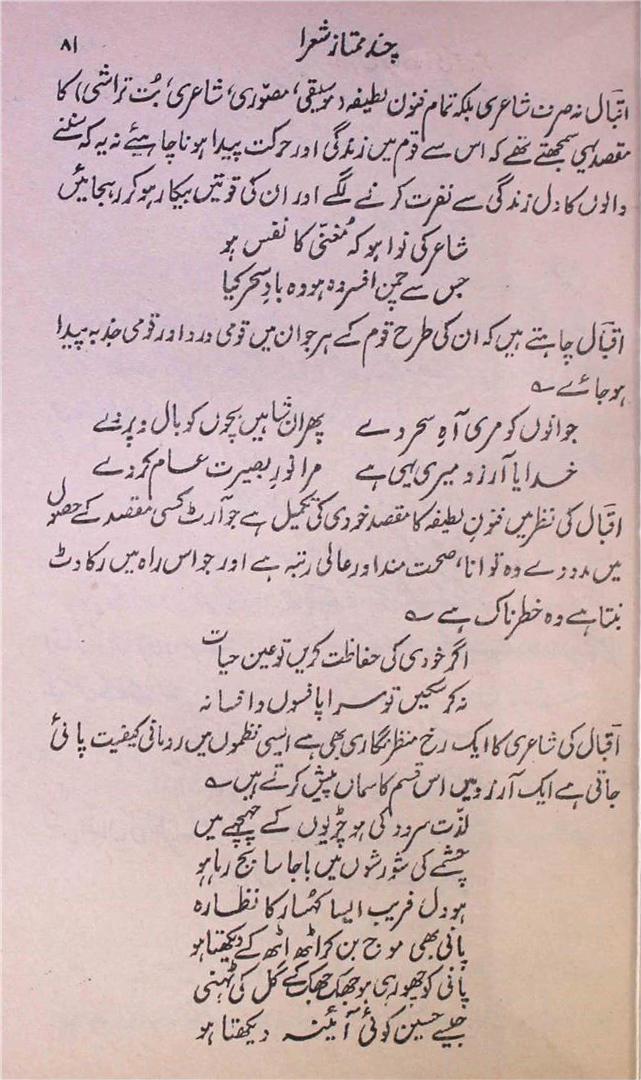 چند ممتاز شعرا ۸۱
اقبال نہ صرف شاعری بلکہ تمام فنون لطیفہ (موسیقی، مصوّری، شاعری، بُت تراشی) کا
مقصد یہی سمجھتے تھے کہ اس سے قوم میں زندگی اور حرکت پیدا ہونا چاہیئے نہ یہ کہ سننے
والوں کا دل زندگی سے نفرت کرنے لگے اور ان کی قوتیں بیکار ہو کر رہجائیں
شاعر کی نوا ہو کہ مُغنّی کا نفس ہو
جس سے چمن افسردہ ہو وہ بادِ سحر کیا
اقبال چاہتے ہیں کہ ان کی طرح قوم کے ہر جوان میں قومی درد اور قومی جذبہ پیدا
ہو جائے ؎
جوانوں کو مری آہِ سحر دے پھر ان شاہیں بچوں کو بال و پر دے
خدایا آرزو میری یہی ہے مرا نورِ بصیرت عام کر دے
اقبال کی نظر میں فنونِ لطیفہ کا مقصد خودی کی تکمیل ہے جو آرٹ کسی مقصد کے حصول
میں مدد دے وہ توانا، صحت مند اور عالی رتبہ ہے اور جو اس راہ میں رکاوٹ
بنتا ہے وہ خطرناک ہے ؎
اگر خودی کی حفاظت کریں تو عین حیات
نہ کر سکیں تو سراپا فسوں و افسانہ
اقبال کی شاعری کا ایک رخ منظر نگاری بھی ہے ایسی نظموں میں رومانی کیفیت پائی
جاتی ہے ایک آرزو میں اس قسم کا سماں پیش کرتے ہیں ؎
لذّت سرود کی ہو چڑیوں کے چہچہے میں
چشمے کی شورشوں میں باجا سا بج رہا ہو
ہو دل فریب ایسا کہسار کا نظارہ
پانی بھی موج بن کر اٹھ اٹھ کے دیکھتا ہو
پانی کو چھو رہی ہو جھک جھک کے گل کی ٹہنی
جیسے حسین کوئی آئینہ دیکھتا ہو